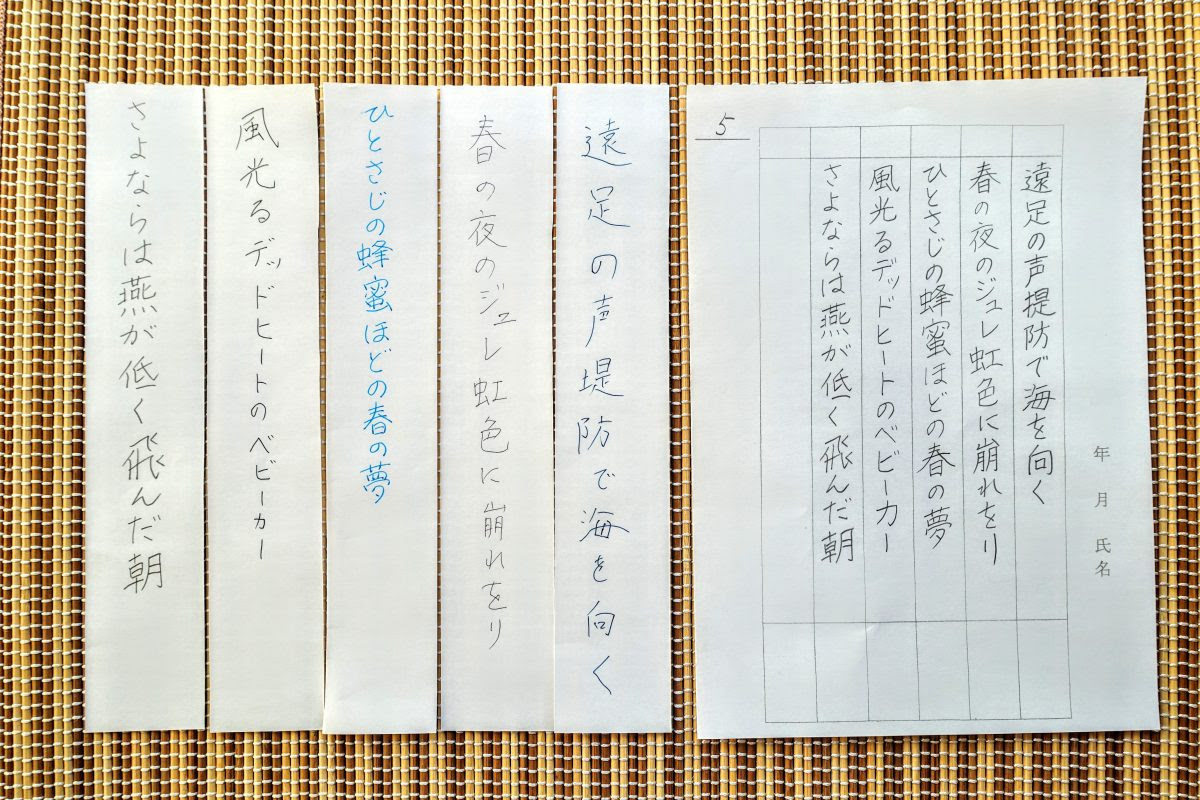 年 月 氏名
遠足の声提防で海を向く
春の夜のジュレ虹色に崩れをり
ひとさじの蜂蜜ほどの春の夢
風光るデッドヒートのベビーカー
さよならは燕が低く飛んだ朝
5
遠足の声堤防で海を向く
春の夜のジュレ虹色に崩れをり
ひとさじの蜂蜜ほどの春の夢
風光るデッドヒートのベビーカー
さよならは燕が低く飛んだ朝